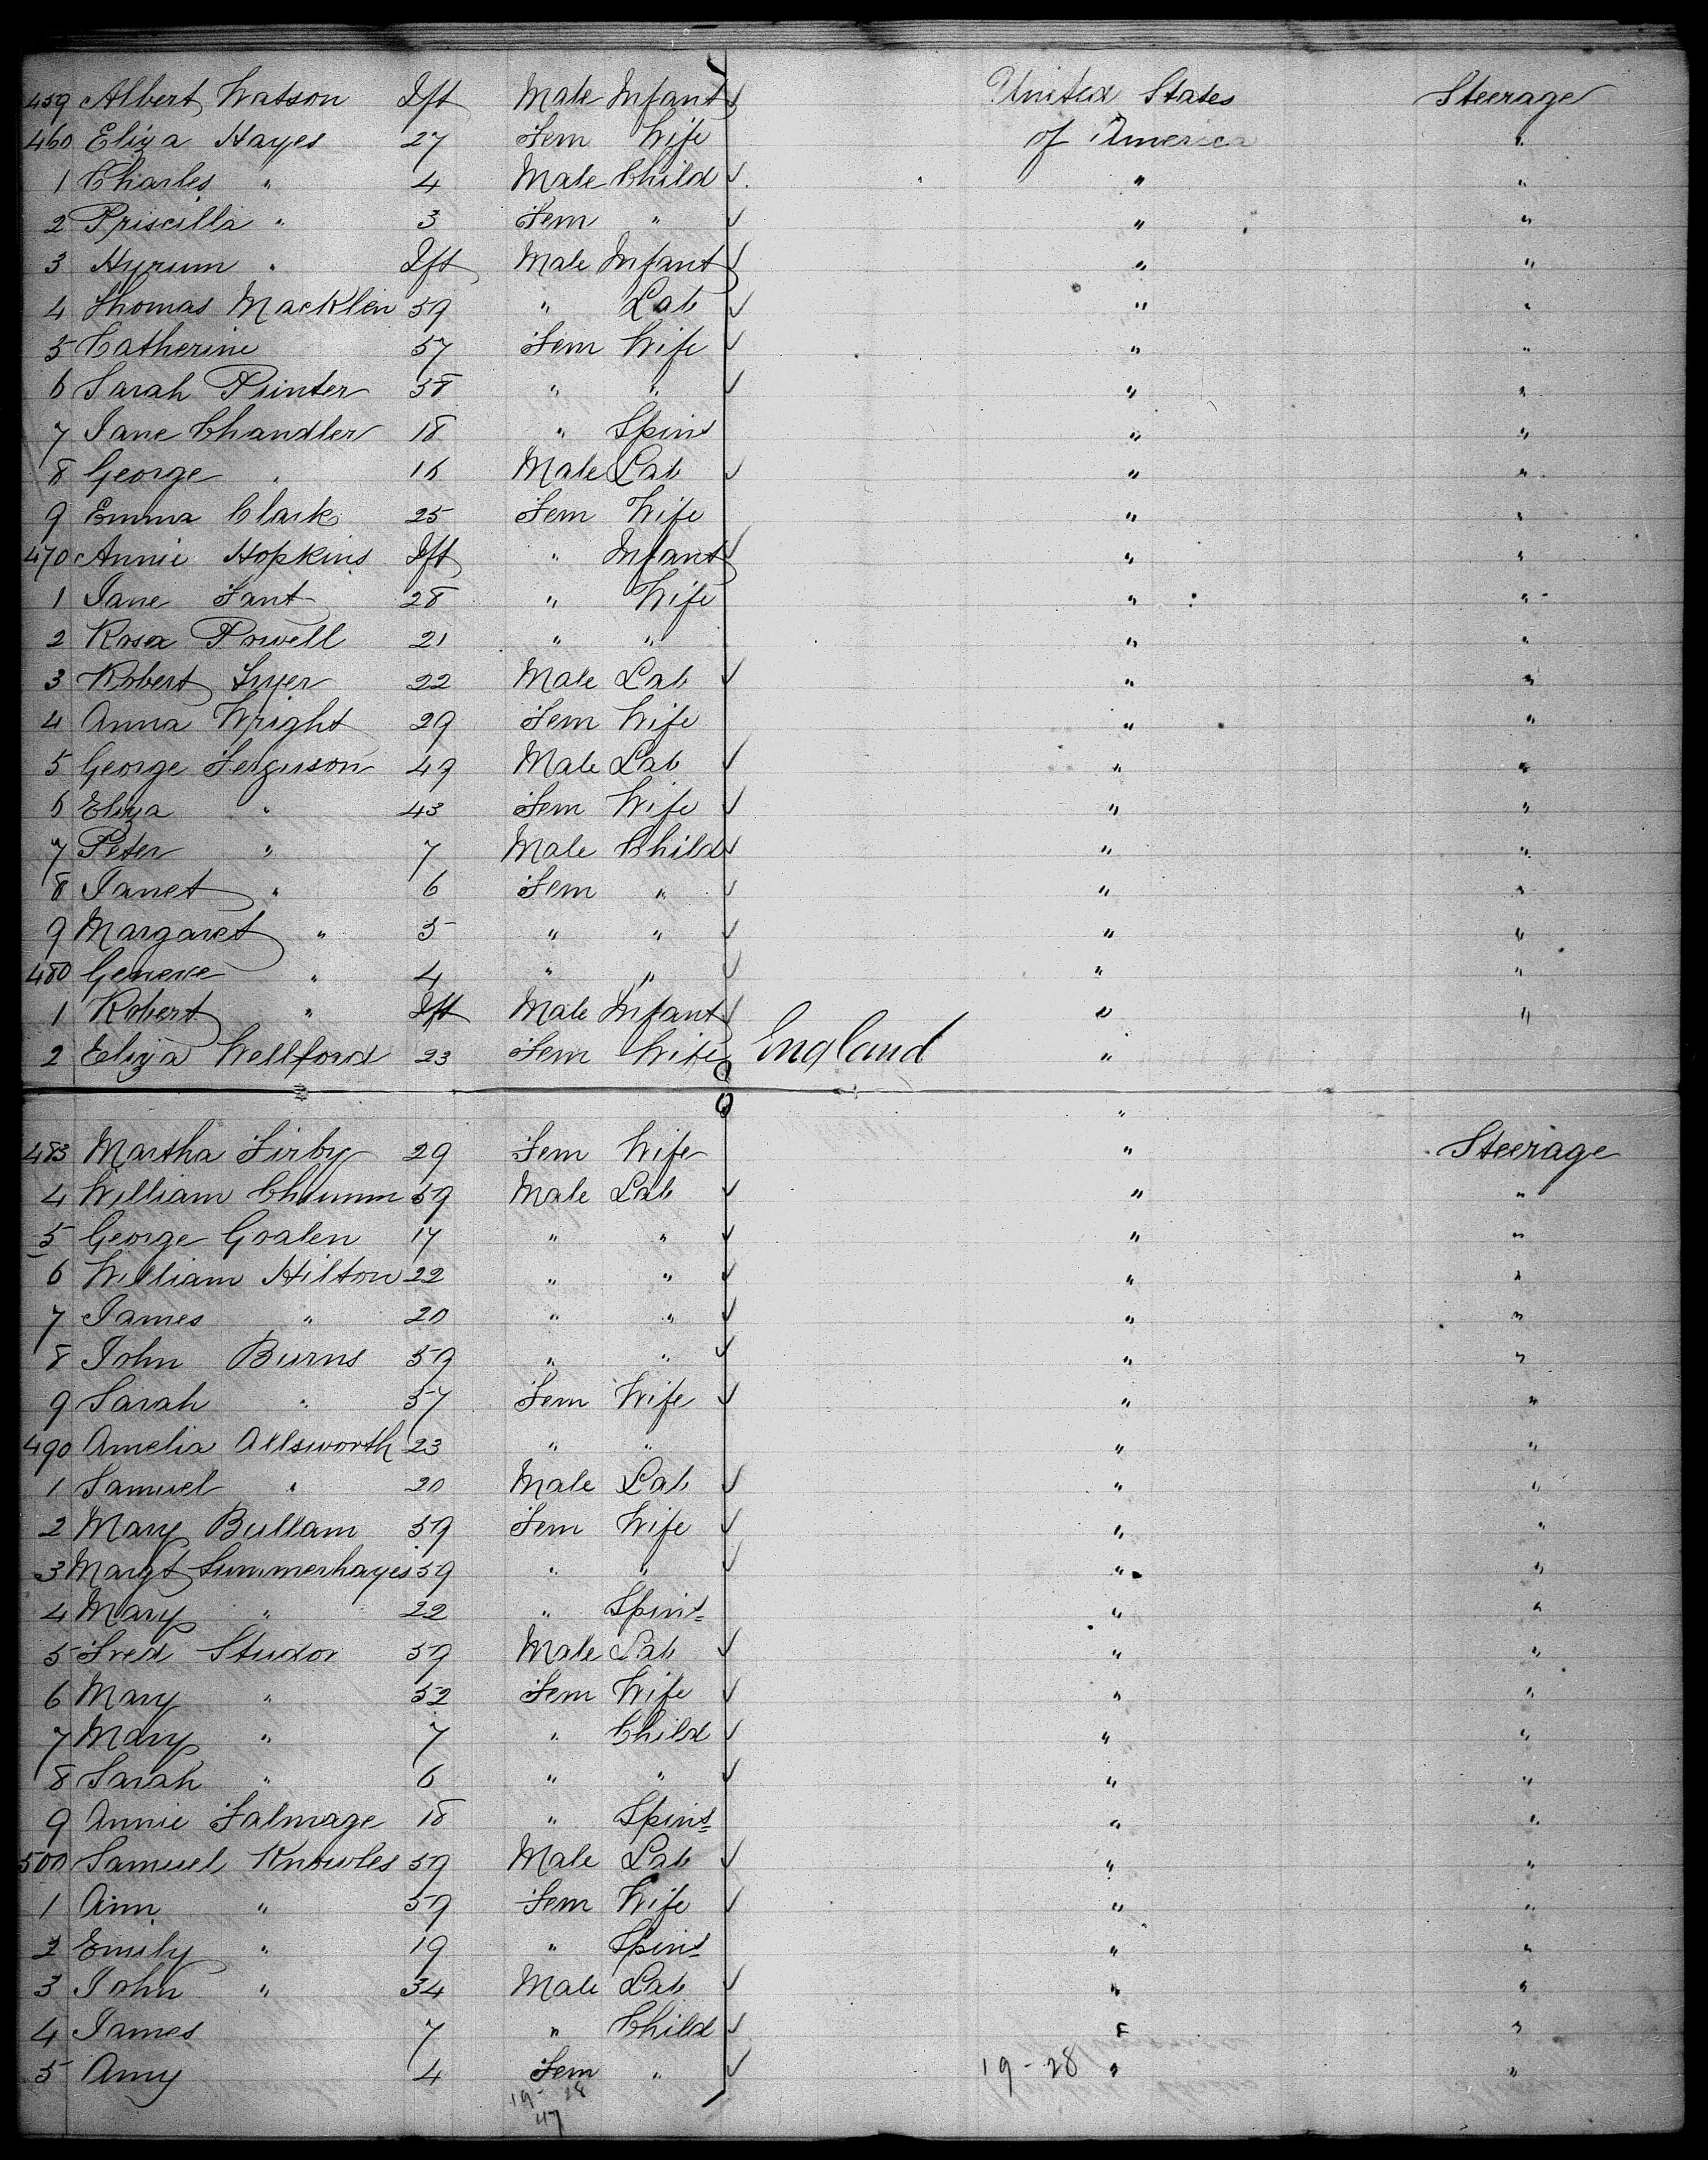 459 Albert Watson Ift Male Infant United States Steerage
460 Eliza Hayes 27 Fem Wife of America "
1 Charles " 4 Male Child " "
2 Priscilla " 3 Fem " " "
3 Hyrum " Ift Male Infant " "
4 Thomas Macklin 59 " Lab " "
5 Catherine 57 Fem Wife " "
6 Sarah Printer 38 " " " "
7 Jane Chandler 18 " Spins " "
8 George " 16 Male Lab " "
9 Emma Clark 25 Fem Wife " "
470 Annie Hopkins Ift " Infant " "
1 Jane Fant 28 " Wife " "
2 Rosa Powell 21 " " " "
3 Robert Fryer 22 Male Lab " "
4 Anna Wright 29 Fem Wife " "
5 George Ferguson 49 Male Lab " "
6 Eliza " 43 Fem Wife " "
7 Peter " 7 Male Child " "
8 Janet " 6 Fem " " "
9 Margaret " 5 " " " "
480 Geneve " 4 " " " "
1 Robert " Ift Male Infant " "
2 Eliza Wellford 23 Fem Wife England "
"
483 Martha Firby 29 Fem Wife " Steerage
4 William 59 Male Lab " "
5 George Goalen 17 " " " "
6 William Hilton 22 " " " "
7 James " 20 " " " "
8 John Burns 59 " " " "
9 Sarah " 57 Fem Wife " "
490 Amelia Allsworth 23 " " " "
1 Samuel " 20 Male Lab " "
2 Mary Bullam 59 Fem Wife " "
3 Margt Summerhayes 59 " " " "
4 Mary " 22 " Spins " "
5 Fred Studor 59 Male Lab " "
6 Mary " 52 Fem Wife " "
7 Mary " 7 " Child " "
8 Sarah " 6 " " " "
9 Annie Talmage 18 " Spins " "
500 Samuel Knowles 59 Male Lab " "
1 Ann " 59 Fem Wife " "
2 Emily " 19 " Spins " "
3 John " 34 Male Lab " "
4 James 7 " Child " "
5 Amy 4 Fem " 19-28 " "
19-28
47